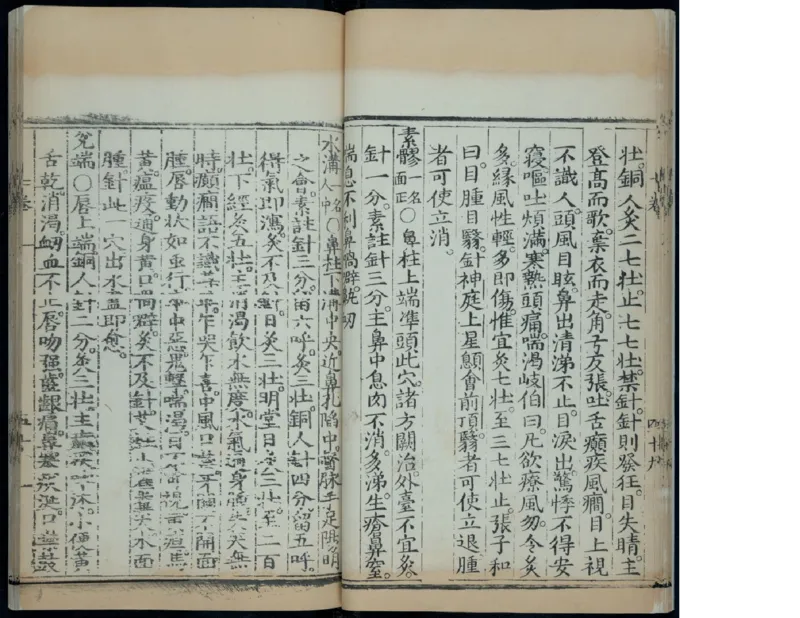 壯。銅人灸二七壯。止七七壯。禁針。針則發狂。目失睛。主
登高而歌。棄衣而走。角弓反張。吐舌。癲疾風癇。目上視
不識人。頭風目眩。鼻出清涕不止。目淚出。驚悸不得安
寢。嘔吐煩滿。寒熱頭痛。喘渴。岐伯曰。凡欲療風。勿令灸
多。緣風性輕。多即傷。惟宜灸七壯。至三七壯止。張子和
曰。目腫目翳。針神庭上星顖會前頂。翳者可使立退。腫
者可使立消。
素髎一名面正〇鼻柱上端準頭。此穴諸方闕治。外臺不宜灸。
針一分。素註針三分。主鼻中息肉不消。多涕。生瘡鼻窒。
喘息不利。鼻喎僻。鼽衄
水溝一名人中〇鼻柱下溝中央。近鼻孔陷中。督脉手足陽明
之會。素註針三分。留六呼。灸三壯。銅人針四分。留五呼。
得氣即瀉。灸不及針。日灸三壯。明堂日灸三壯。至二百
壯。下經灸五壯。主消渴飲水無度。水氣遍身腫。失笑無
時。癲癇語不識尊卑。乍哭乍喜。中風口噤。牙關不開。面
腫。唇動狀如蟲行。卒中惡。鬼擊。喘渴。目不可視。黃疸馬
黃。瘟疫通身黃。口喎僻。灸不及針。艾炷小雀糞大。水面
腫。針此一穴。出水盡即愈。
兌端〇唇上端。銅人針二分。灸三壯。主癲疾吐沫。小便黃
舌乾。消渴。衄血不止。唇吻強。齒齦痛。鼻塞。痰涎。口噤鼓